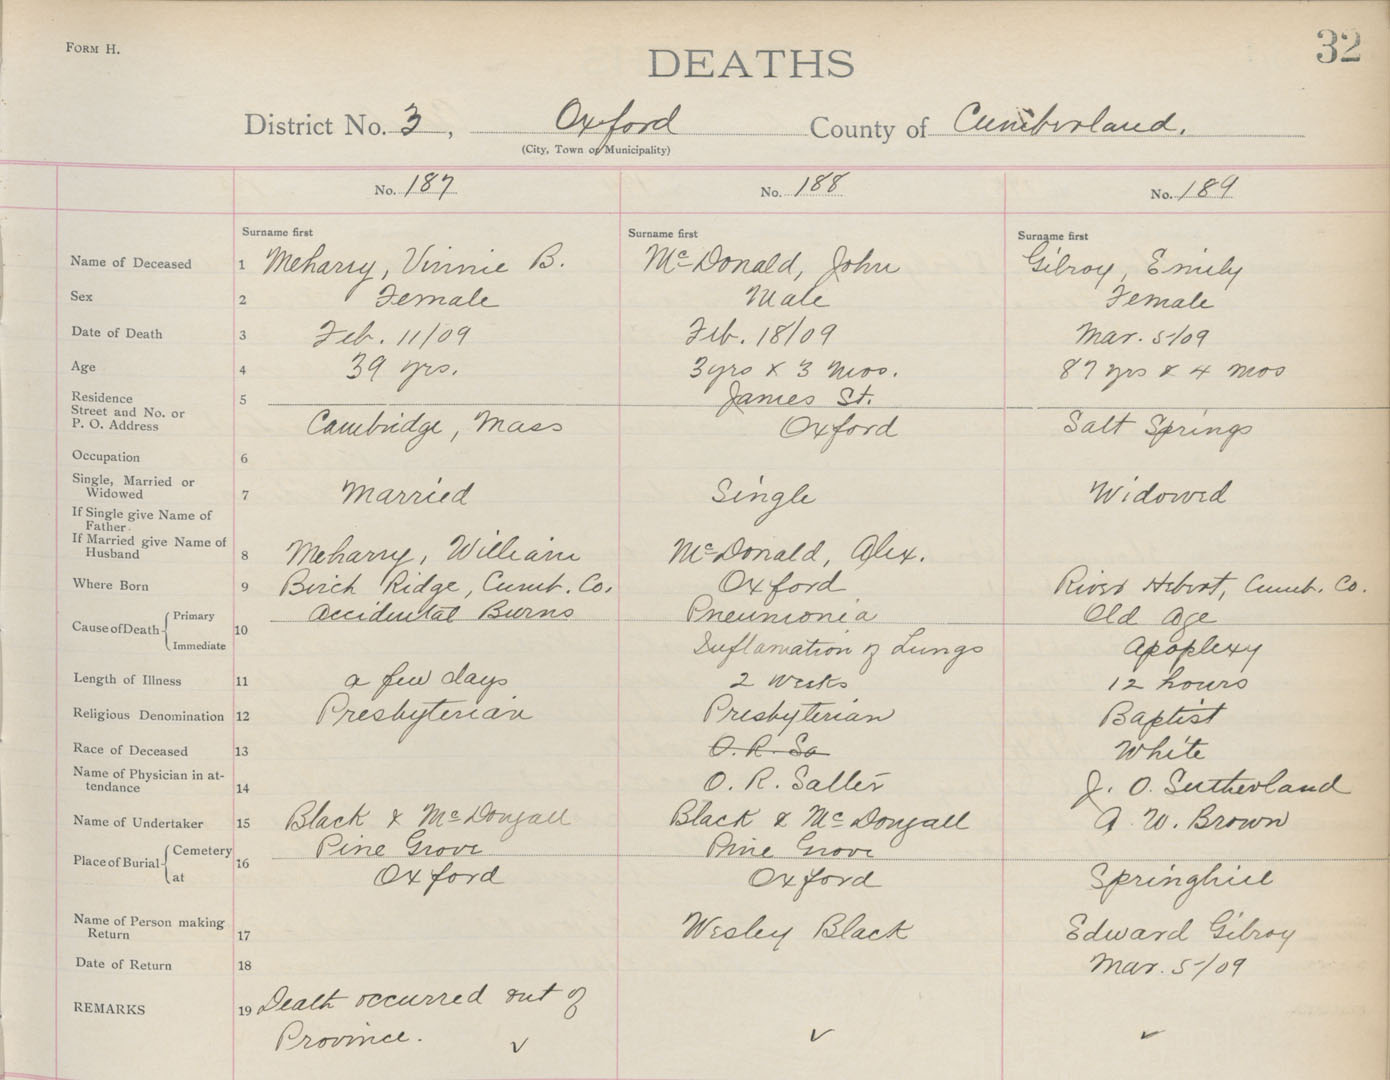 FORM H.
32
DEATHS
District No. 3, Oxford County of Cumberland.
(City, Town or Municipality)
No. 187 No. 188 No. 189
Surname first Surname first Surname first
Name of Deceased 1 Meharry, Vinnie B. McDonald, John Gilroy, Emily
Sex 2 Female Male Female
Date of Death 3 Feb. 11/09 Feb. 18/09 Mar. 5/09
Age 4 39 yrs. 3 yrs & 3 mos. 87 yrs & 4 mos
Residence 5 James St.
Street and No. or
P. O. Address Cambridge, Mass Oxford Salt Springs
Occupation 6
Single, Married or
Widowed 7 Married Single Widowed
If Single give Name of
Father.
If Married give Name of
Husband 8 Meharry, William McDonald, Alex.
Where Born 9 Birch Ridge, Cumb. Co. Oxford River Hebert, Cumb. Co.
Cause of Death 10 Primary Accidental Burns Pneumonia Old Age
Immediate Inflamation of Lungs Apoplexy
Length of Illness 11 a few days 2 weeks 12 hours
Religious Denomination 12 Presbyterian Presbyterian Baptist
Race of Deceased 13 O. R. Sa White
Name of Physician in at-
tendance 14 O. R. Salter J. O. Sutherland
Name of Undertaker 15 Black & McDougall Black & McDougall A. W. Brown
Place of Burial 16 Cemetery Pine Grove Pine Grove
at Oxford Oxford Springhill
Name of Person making
Return 17 Wesley Black Edward Gilroy
Date of Return 18 Mar. 5/09
REMARKS 19 Death occurred out of
Province.